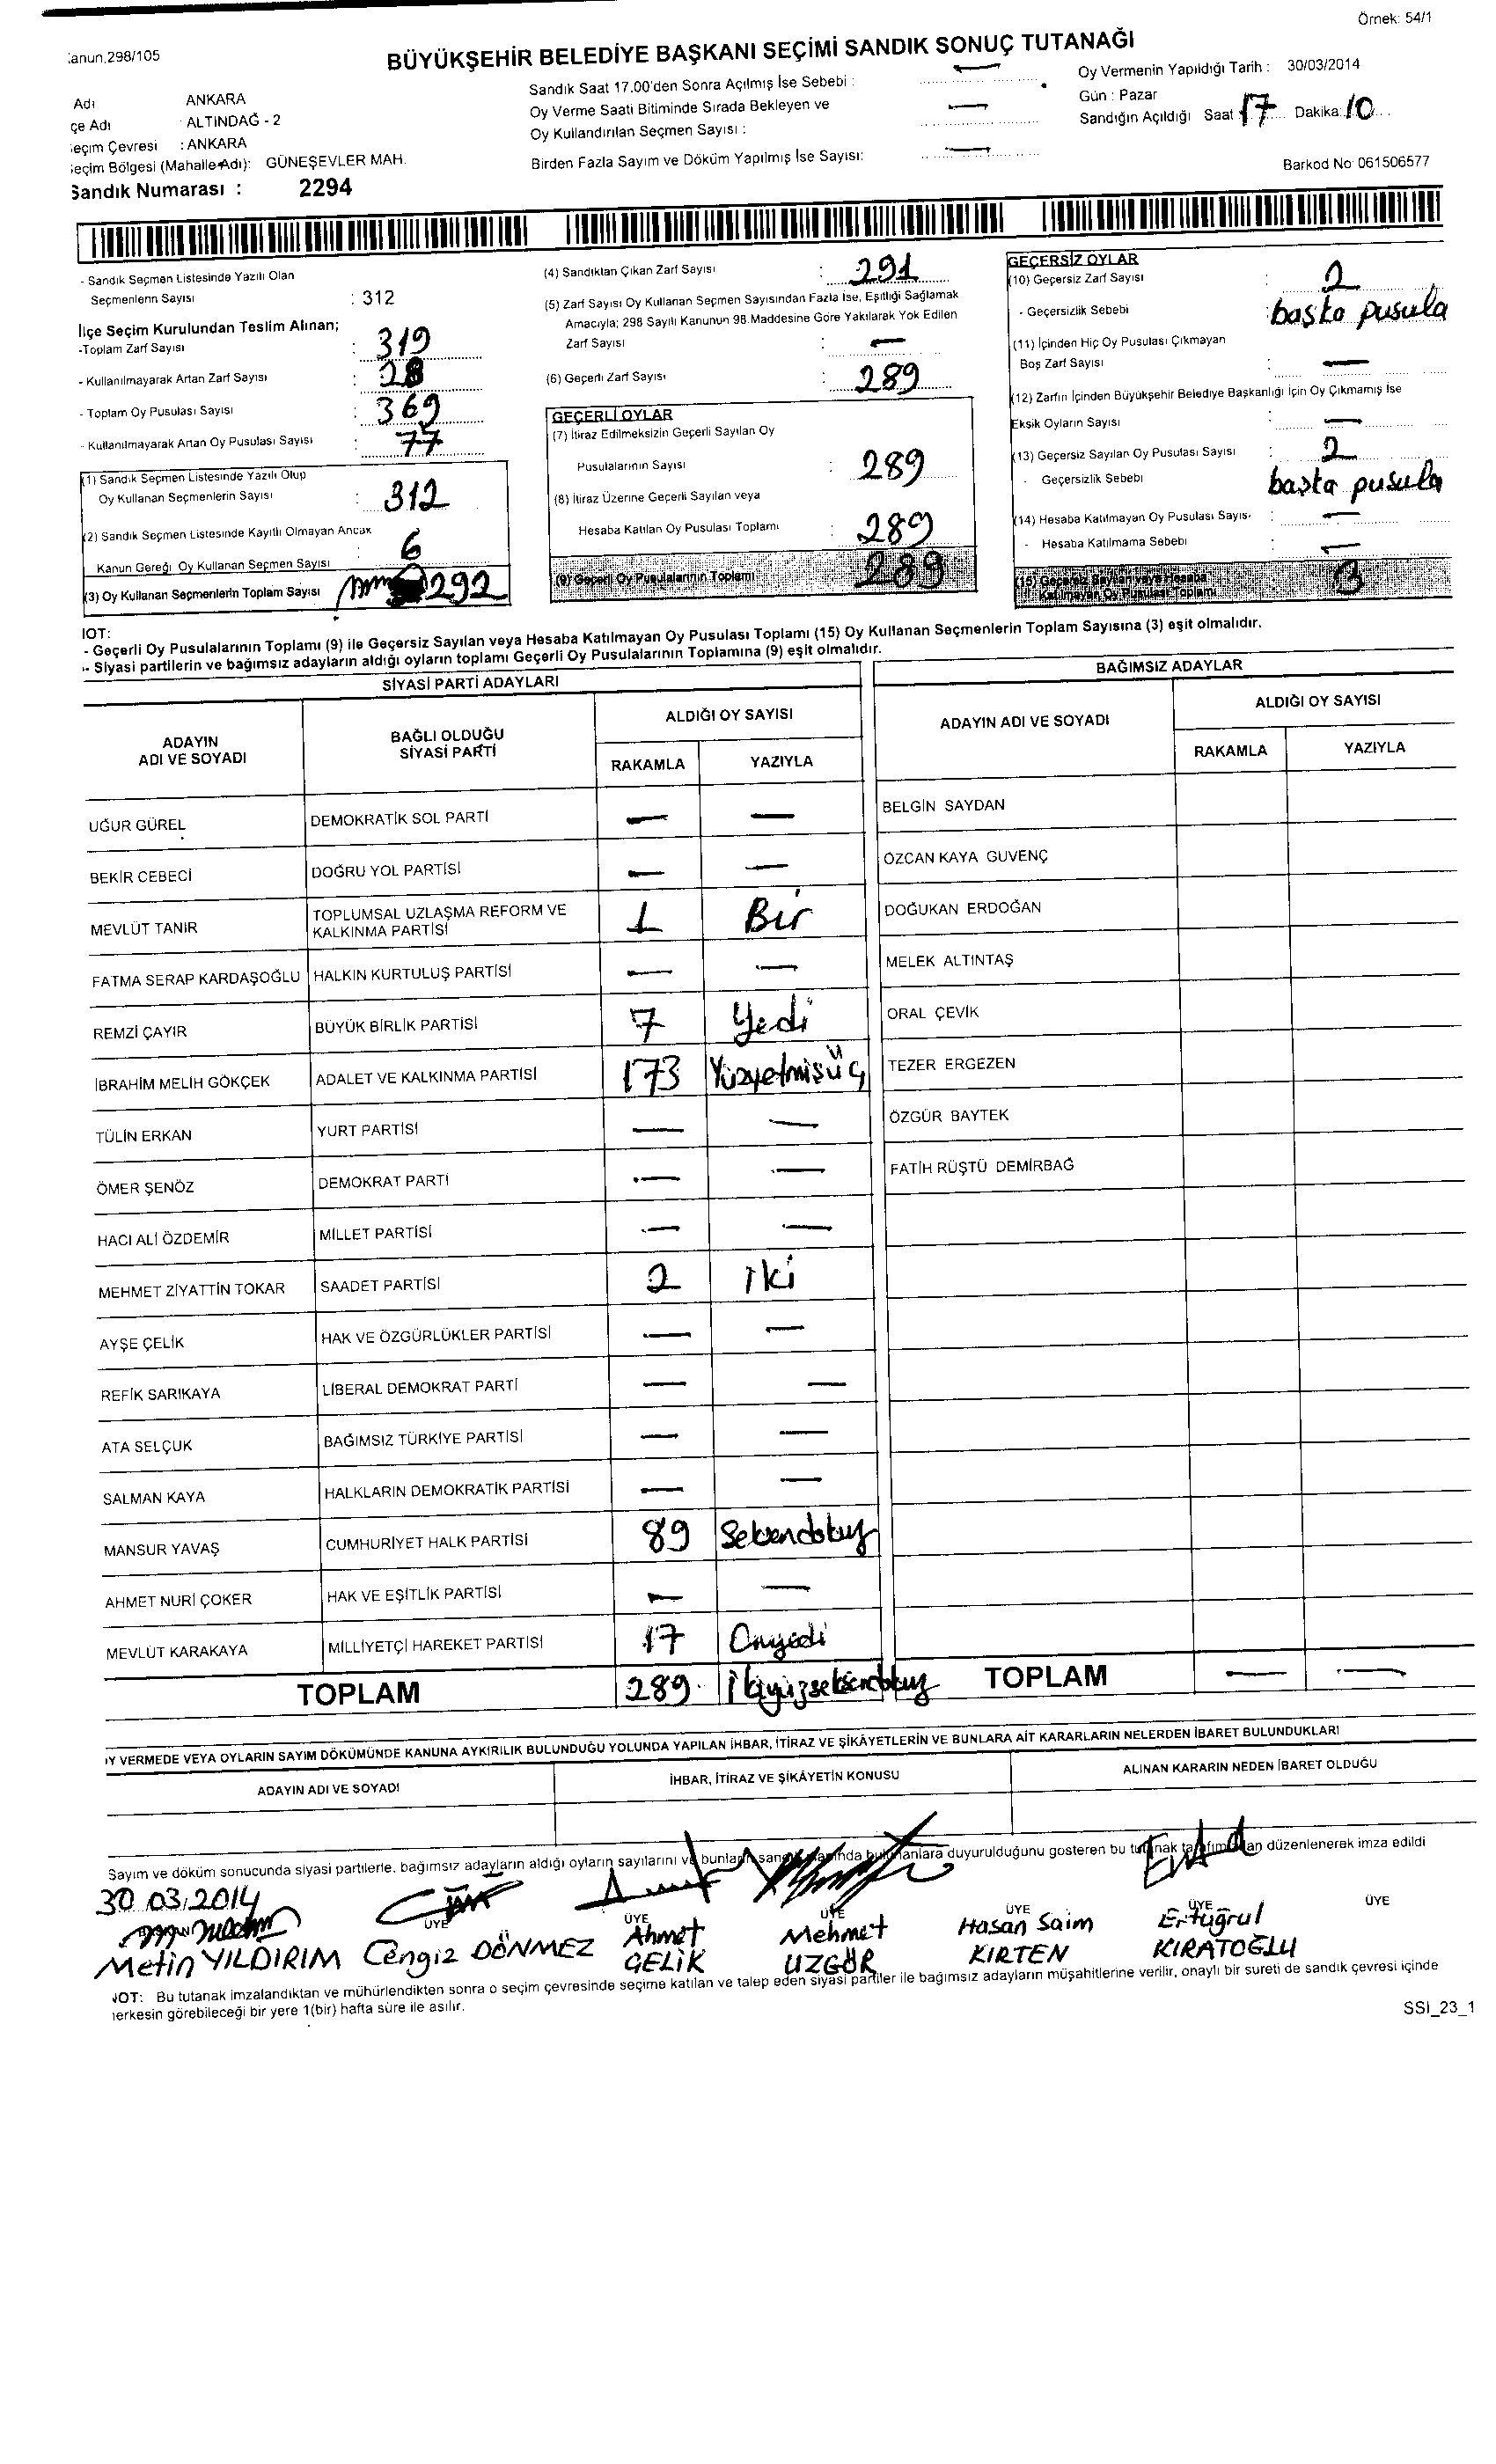 Örnek: 54/1
anun.298/105
BÜYÜKŞEHİR BELEDİYE BAŞKANI SEÇİMİ SANDIK SONUÇ TUTANAĞI
Adı ANKARA
çe Adı ALTINDAĞ - 2
eçim Çevresi : ANKARA
eçim Bölgesi (Mahalle Adı): GÜNEŞEVLER MAH.
Sandık Numarası : 2294
Sandık Saat 17.00'den Sonra Açılmış İse Sebebi : —
Oy Verme Saati Bitiminde Sırada Bekleyen ve
Oy Kullandırılan Seçmen Sayısı : —
Birden Fazla Sayım ve Döküm Yapılmış İse Sayısı: —
Oy Vermenin Yapıldığı Tarih : 30/03/2014
Gün : Pazar
Sandığın Açıldığı Saat 17 Dakika: 10
Barkod No: 061506577
- Sandık Seçmen Listesinde Yazılı Olan
Seçmenlerin Sayısı : 312
İlçe Seçim Kurulundan Teslim Alınan;
-Toplam Zarf Sayısı : 319
- Kullanılmayarak Artan Zarf Sayısı : 28
- Toplam Oy Pusulası Sayısı : 369
- Kullanılmayarak Artan Oy Pusulası Sayısı : 77
(1) Sandık Seçmen Listesinde Yazılı Olup
Oy Kullanan Seçmenlerin Sayısı : 312
(2) Sandık Seçmen Listesinde Kayıtlı Olmayan Ancak
Kanun Gereği Oy Kullanan Seçmen Sayısı 6
(3) Oy Kullanan Seçmenlerin Toplam Sayısı 292
(4) Sandıktan Çıkan Zarf Sayısı : 291
(5) Zarf Sayısı Oy Kullanan Seçmen Sayısından Fazla İse, Eşitliği Sağlamak
Amacıyla; 298 Sayılı Kanunun 98.Maddesine Göre Yakılarak Yok Edilen
Zarf Sayısı : —
(6) Geçerli Zarf Sayısı : 289
GEÇERLİ OYLAR
(7) İtiraz Edilmeksizin Geçerli Sayılan Oy
Pusulalarının Sayısı : 289
(8) İtiraz Üzerine Geçerli Sayılan veya
Hesaba Katılan Oy Pusulası Toplamı : 289
(9) Geçerli Oy Pusulalarının Toplamı 289
GEÇERSİZ OYLAR
(10) Geçersiz Zarf Sayısı : 2
- Geçersizlik Sebebi : başka pusula
(11) İçinden Hiç Oy Pusulası Çıkmayan
Boş Zarf Sayısı : —
(12) Zarfın İçinden Büyükşehir Belediye Başkanlığı İçin Oy Çıkmamış İse
Eksik Oyların Sayısı : —
(13) Geçersiz Sayılan Oy Pusulası Sayısı : 2
- Geçersizlik Sebebi başka pusula
(14) Hesaba Katılmayan Oy Pusulası Sayıs. : —
- Hesaba Katılmama Sebebi : —
(15) Geçersiz Sayılan veya Hesaba
Katılmayan Oy Pusulası Toplamı 3
IOT:
- Geçerli Oy Pusulalarının Toplamı (9) ile Geçersiz Sayılan veya Hesaba Katılmayan Oy Pusulası Toplamı (15) Oy Kullanan Seçmenlerin Toplam Sayısına (3) eşit olmalıdır.
- Siyasi partilerin ve bağımsız adayların aldığı oyların toplamı Geçerli Oy Pusulalarının Toplamına (9) eşit olmalıdır.
SİYASİ PARTİ ADAYLARI
ADAYIN ADI VE SOYADI BAĞLI OLDUĞU SİYASİ PARTİ ALDIĞI OY SAYISI
RAKAMLA YAZIYLA
UĞUR GÜREL DEMOKRATİK SOL PARTİ — —
BEKİR CEBECİ DOĞRU YOL PARTİSİ — —
MEVLÜT TANIR TOPLUMSAL UZLAŞMA REFORM VE KALKINMA PARTİSİ 1 Bir
FATMA SERAP KARDAŞOĞLU HALKIN KURTULUŞ PARTİSİ — —
REMZİ ÇAYIR BÜYÜK BİRLİK PARTİSİ 7 Yedi
İBRAHİM MELİH GÖKÇEK ADALET VE KALKINMA PARTİSİ 173 Yüzyetmişüç
TÜLİN ERKAN YURT PARTİSİ — —
ÖMER ŞENÖZ DEMOKRAT PARTİ — —
HACI ALİ ÖZDEMİR MİLLET PARTİSİ — —
MEHMET ZİYATTİN TOKAR SAADET PARTİSİ 2 İki
AYŞE ÇELİK HAK VE ÖZGÜRLÜKLER PARTİSİ — —
REFİK SARIKAYA LİBERAL DEMOKRAT PARTİ — —
ATA SELÇUK BAĞIMSIZ TÜRKİYE PARTİSİ — —
SALMAN KAYA HALKLARIN DEMOKRATİK PARTİSİ — —
MANSUR YAVAŞ CUMHURİYET HALK PARTİSİ 89 Seksendokuz
AHMET NURİ ÇOKER HAK VE EŞİTLİK PARTİSİ — —
MEVLÜT KARAKAYA MİLLİYETÇİ HAREKET PARTİSİ 17 Onyedi
TOPLAM 289 İkiyüzseksendokuz
BAĞIMSIZ ADAYLAR
ADAYIN ADI VE SOYADI ALDIĞI OY SAYISI
RAKAMLA YAZIYLA
BELGİN SAYDAN
ÖZCAN KAYA GÜVENÇ
DOĞUKAN ERDOĞAN
MELEK ALTINTAŞ
ORAL ÇEVİK
TEZER ERGEZEN
ÖZGÜR BAYTEK
FATİH RÜŞTÜ DEMİRBAĞ
TOPLAM — —
Y VERMEDE VEYA OYLARIN SAYIM DÖKÜMÜNDE KANUNA AYKIRILIK BULUNDUĞU YOLUNDA YAPILAN İHBAR, İTİRAZ VE ŞİKÂYETLERİN VE BUNLARA AİT KARARLARIN NELERDEN İBARET BULUNDUKLARI
ADAYIN ADI VE SOYADI İHBAR, İTİRAZ VE ŞİKÂYETİN KONUSU ALINAN KARARIN NEDEN İBARET OLDUĞU
Sayım ve döküm sonucunda siyasi partilerle, bağımsız adayların aldığı oyların sayılarını ve bunların duyurulduğunu gösteren bu tutanak tarafımızdan düzenlenerek imza edildi
30.03.2014
ÜYE ÜYE ÜYE ÜYE ÜYE ÜYE
Metin YILDIRIM Cengiz DÖNMEZ Ahmet ÇELİK Mehmet UZGÖR Hasan Saim KIRTEN Ertuğrul KIRATOĞLU
NOT: Bu tutanak imzalandıktan ve mühürlendikten sonra o seçim çevresinde seçime katılan ve talep eden siyasi partiler ile bağımsız adayların müşahitlerine verilir, onaylı bir sureti de sandık çevresi içinde
herkesin görebileceği bir yere 1(bir) hafta süre ile asılır.
SSI_23_1